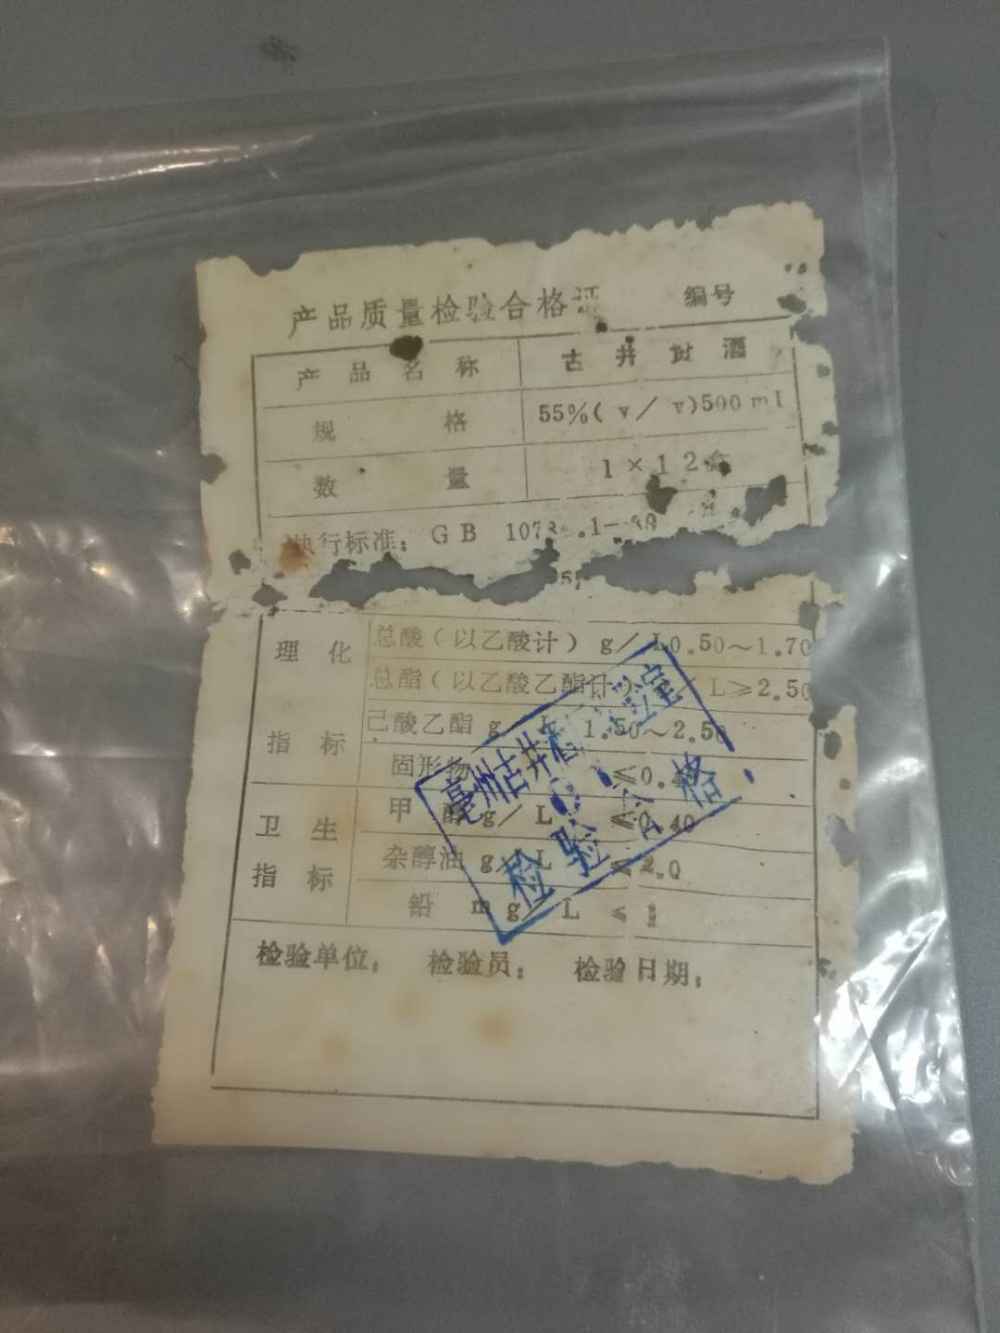 产品质量检验合格证 编号
产品名称 古井 酒
规格 55%(v/v)500ml
数量 1×12
执行标准：GB 107 .1-89
理化指标
总酸(以乙酸计) g/L 0.50～1.70
总酯(以乙酸乙酯计) L≥2.50
己酸乙酯 g L 1.50～2.50
固形物 ≤0.
卫生指标
甲醇 g/L ≤0.40
杂醇油 g/L ≤2.0
铅 mg/L ≤1
亳州古井 室
检验合格
检验单位： 检验员： 检验日期：